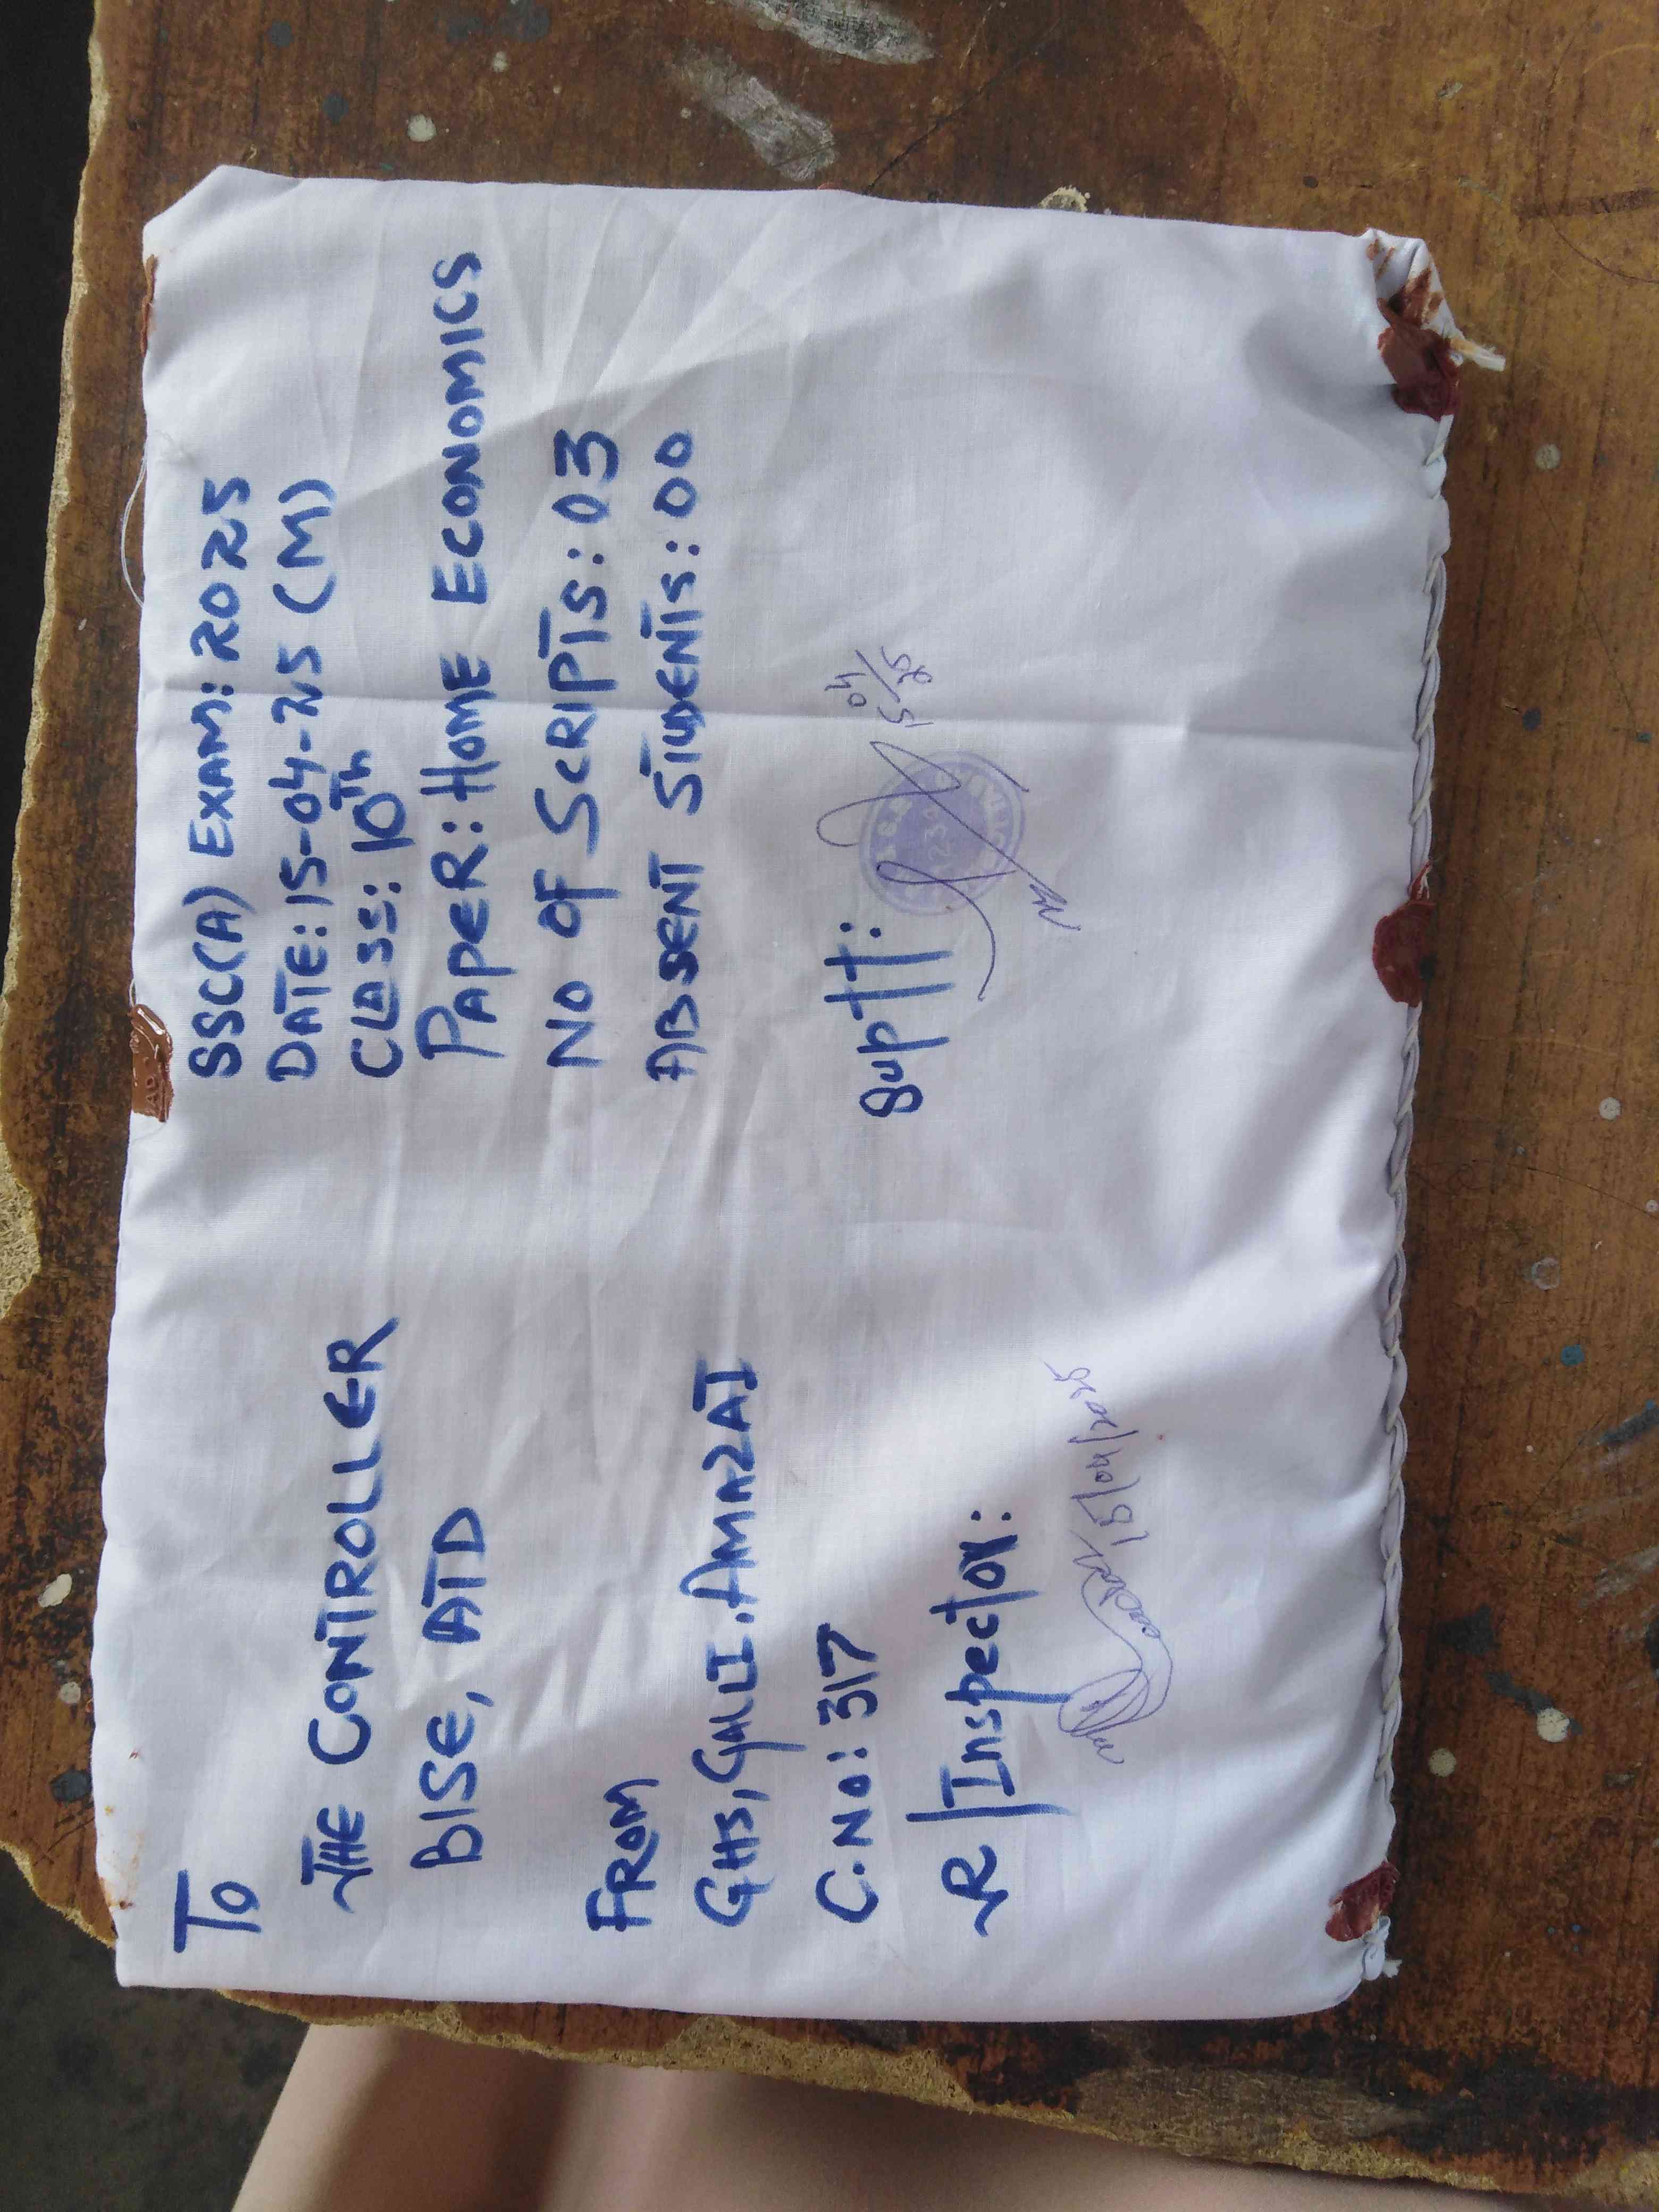 To
THE CONTROLLER
BISE, ATD
FROM
GHS, GALLI.AMAZAI
C.No: 317
R/Inspector:
15/04/2025
SSC(A) EXAM: 2025
DATE: 15-04-25 (M)
CLASS: 10Th
PAPER: HOME ECONOMICS
NO OF SCRIPTS: 03
ABSENT STUDENTS: 00
Suptt:
15/04/25